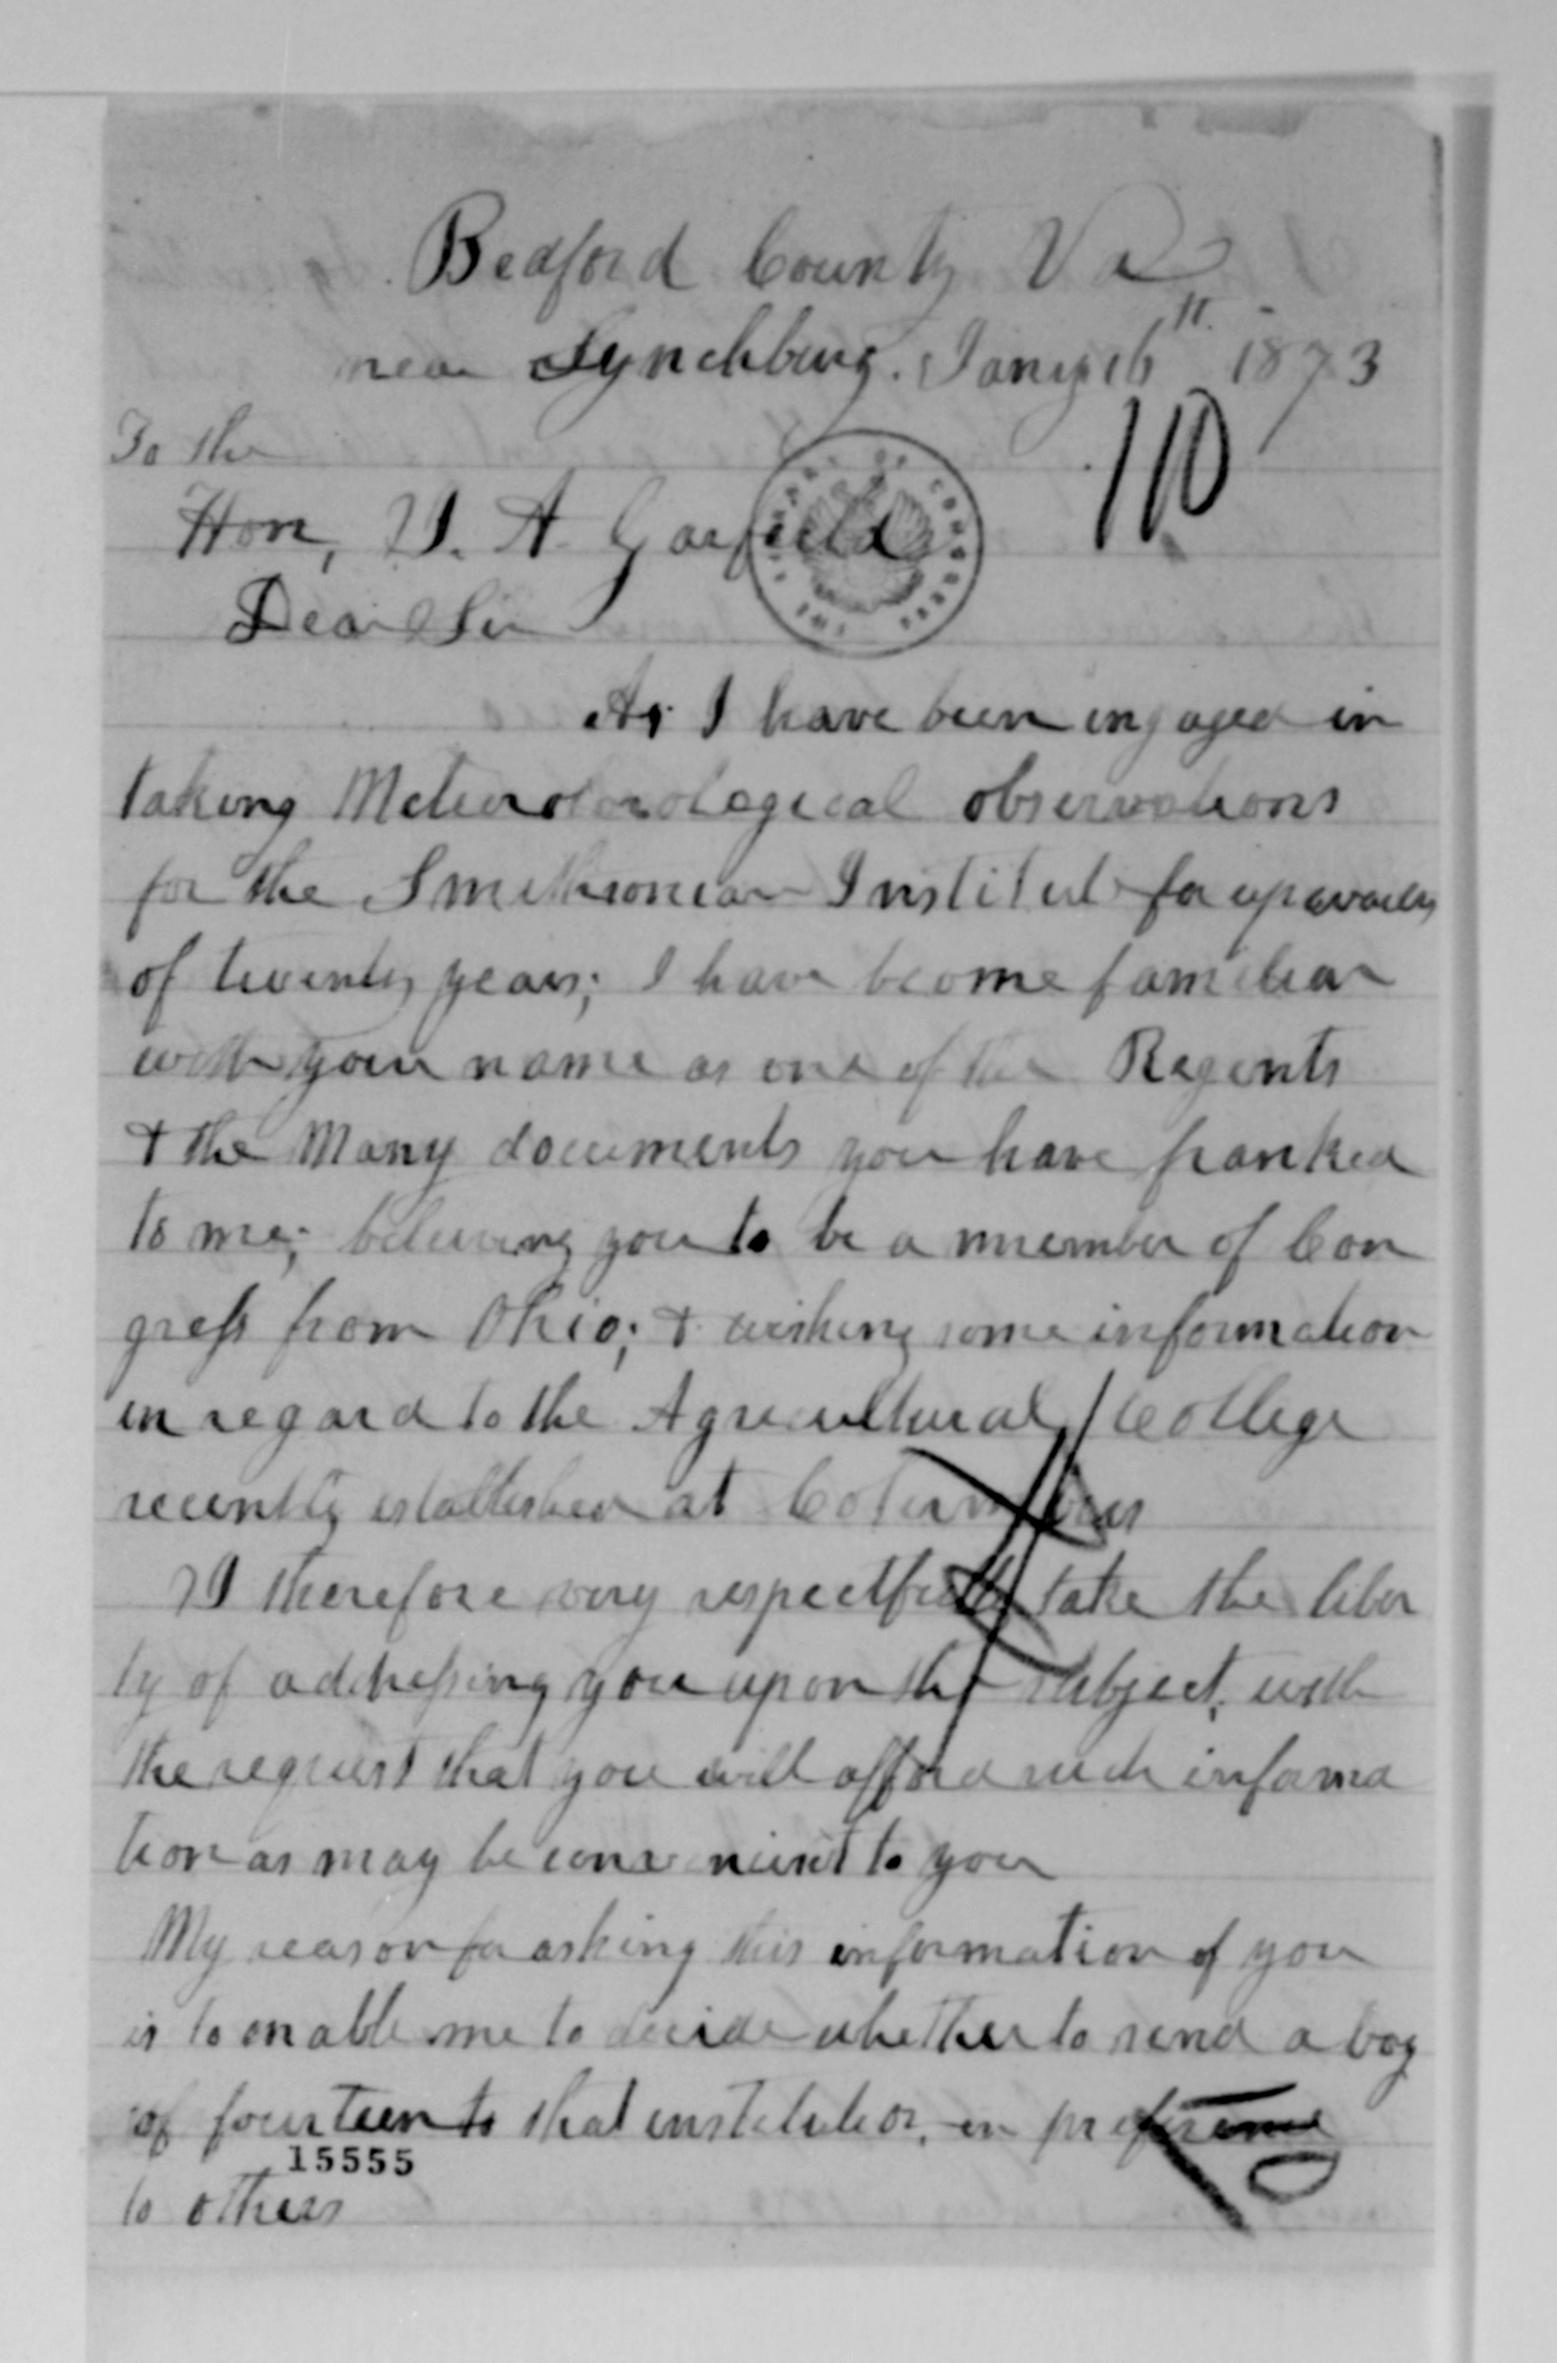 Bedford County Va
near Lynchburg. Jany 16th 1873
110
To the
Hon, J. A. Garfield
THE LIBRARY OF CONGRESS
Dear Sir
As I have been engaged in
taking Meteorolorological observations
for the Smithsonian Institute for upwards
of twenty years; I have become familiar
with your name as one of the Regents
& the Many documents you have franked
to me; believing you to be a member of Con
gress from Ohio; & wishing some information
in regard to the Agricultural College
recently established at Columbus
I therefore very respectfully take the liber
ty of addressing you upon the subject, with
the request that you will afford such informa
tion as may be convenient to you
My reason for asking this information of you
is to enable me to decide whether to send a boy
of fourteen to that institution, in preference
15555
to others